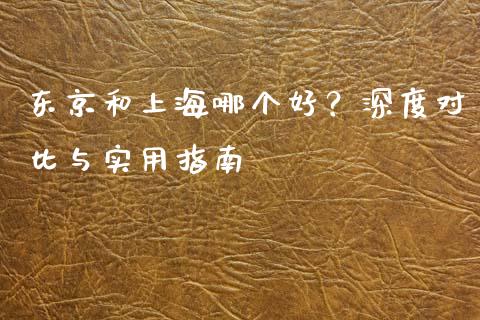 东京和上海哪个好？深度对
比与实用指南